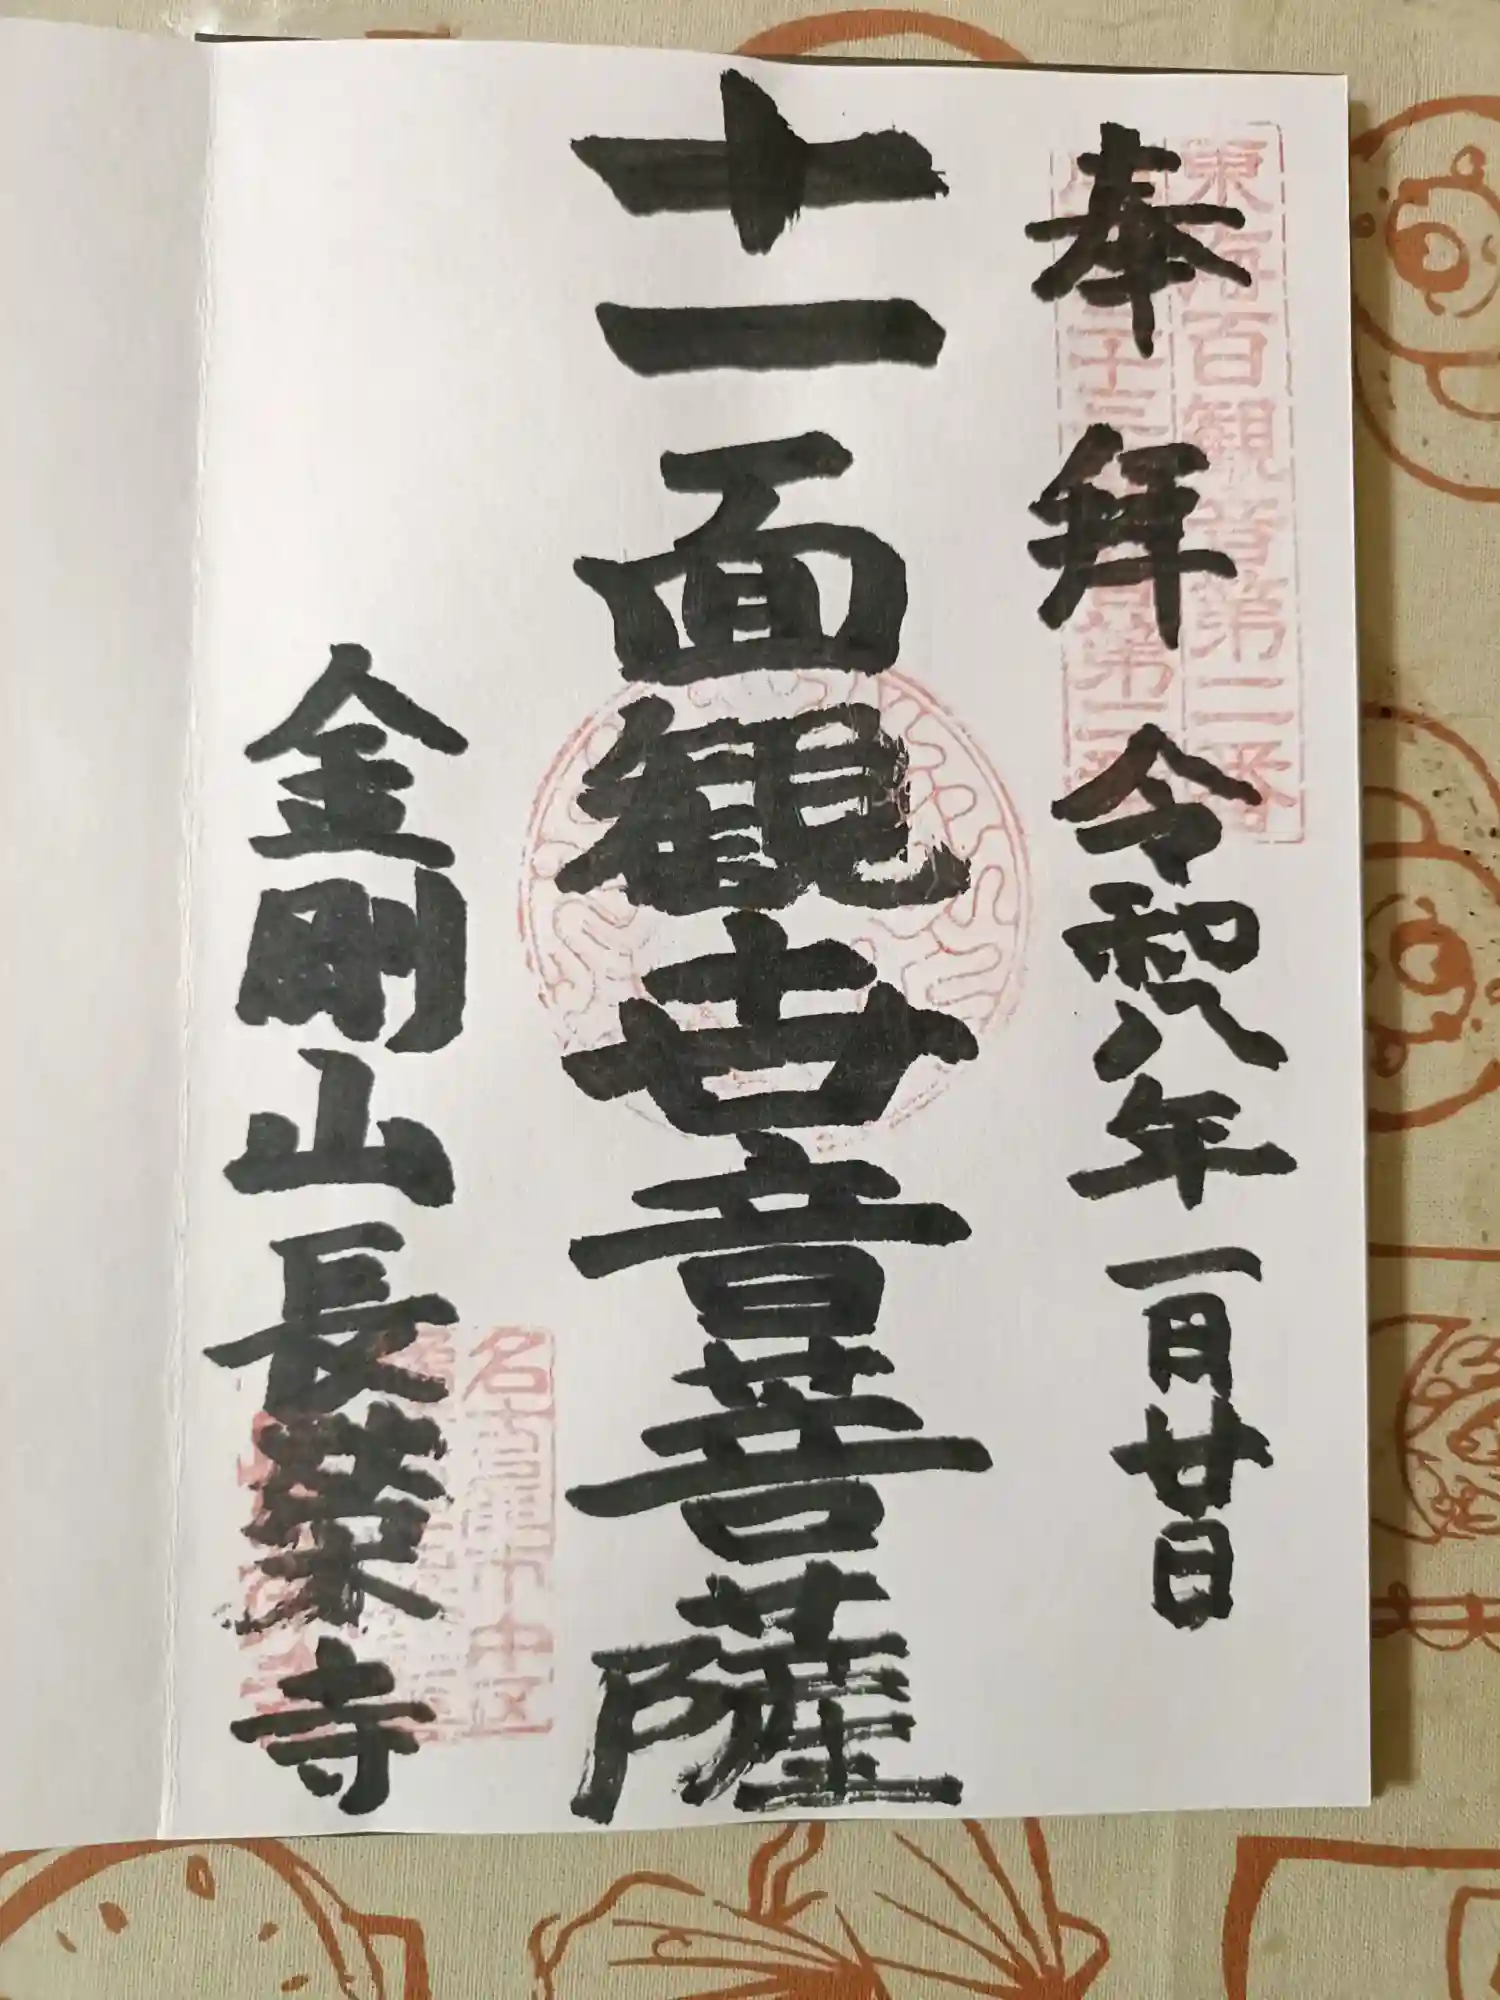 東海百観音第二番
十三 音第二
奉拝 令和八年 一月廿日
十一面観世音菩薩
名古屋市中区
金剛山長栄寺